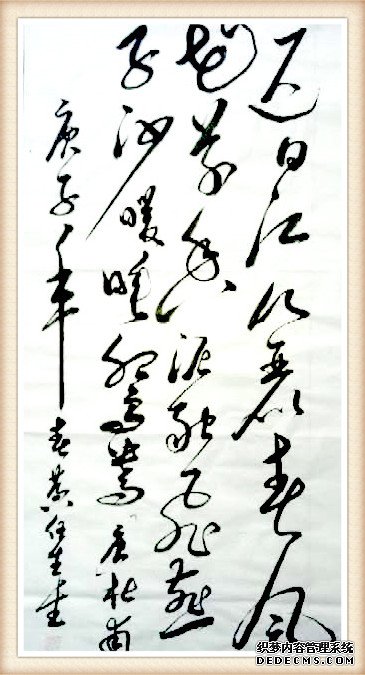 迟日江山丽春风
花草香泥融飞燕
子沙暖睡鸳鸯 唐杜甫
庚子年春黄任生书
织梦内容管理系统
DEDECMS.COM